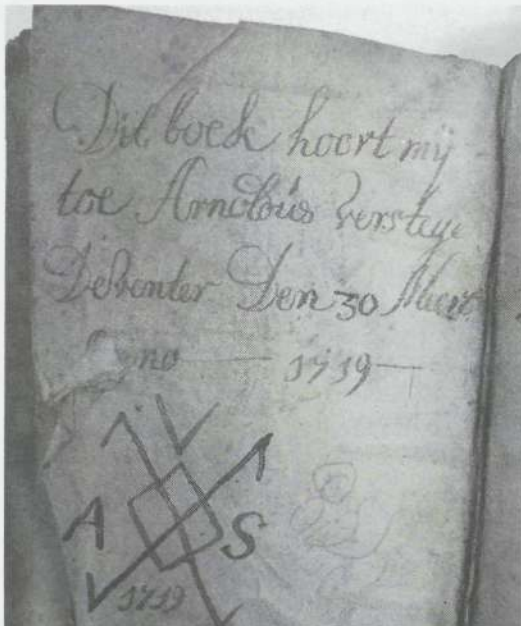 Dit boek hoort mij
toe Arnoldus verstege
Deventer Den 30 Maert
no 1719
A S
1719